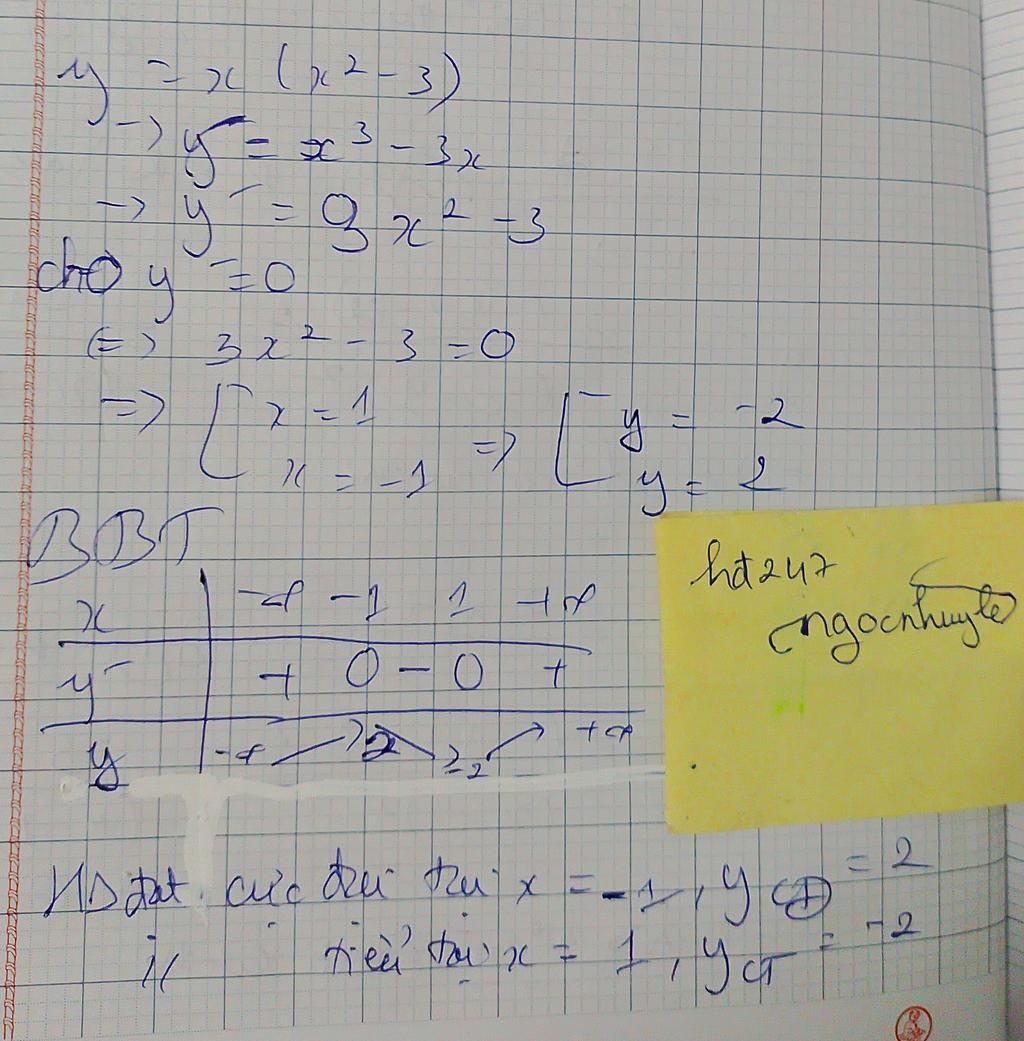 y = x (x² - 3)
→ y = x³ - 3x
→ y' = 3x² - 3
cho y' = 0
⇔ 3x² - 3 = 0
⇒ [ x = 1 ⇒ [ y = -2
x = -1 y = 2
BBT
x -∞ -1 1 +∞
y' + 0 - 0 +
y -∞ ↗ 2 ↘ -2 ↗ +∞
hd247
ngocnhuyle
HS đạt cực đại tại x = -1, y CĐ = 2
tiểu tại x = 1, y CT = -2